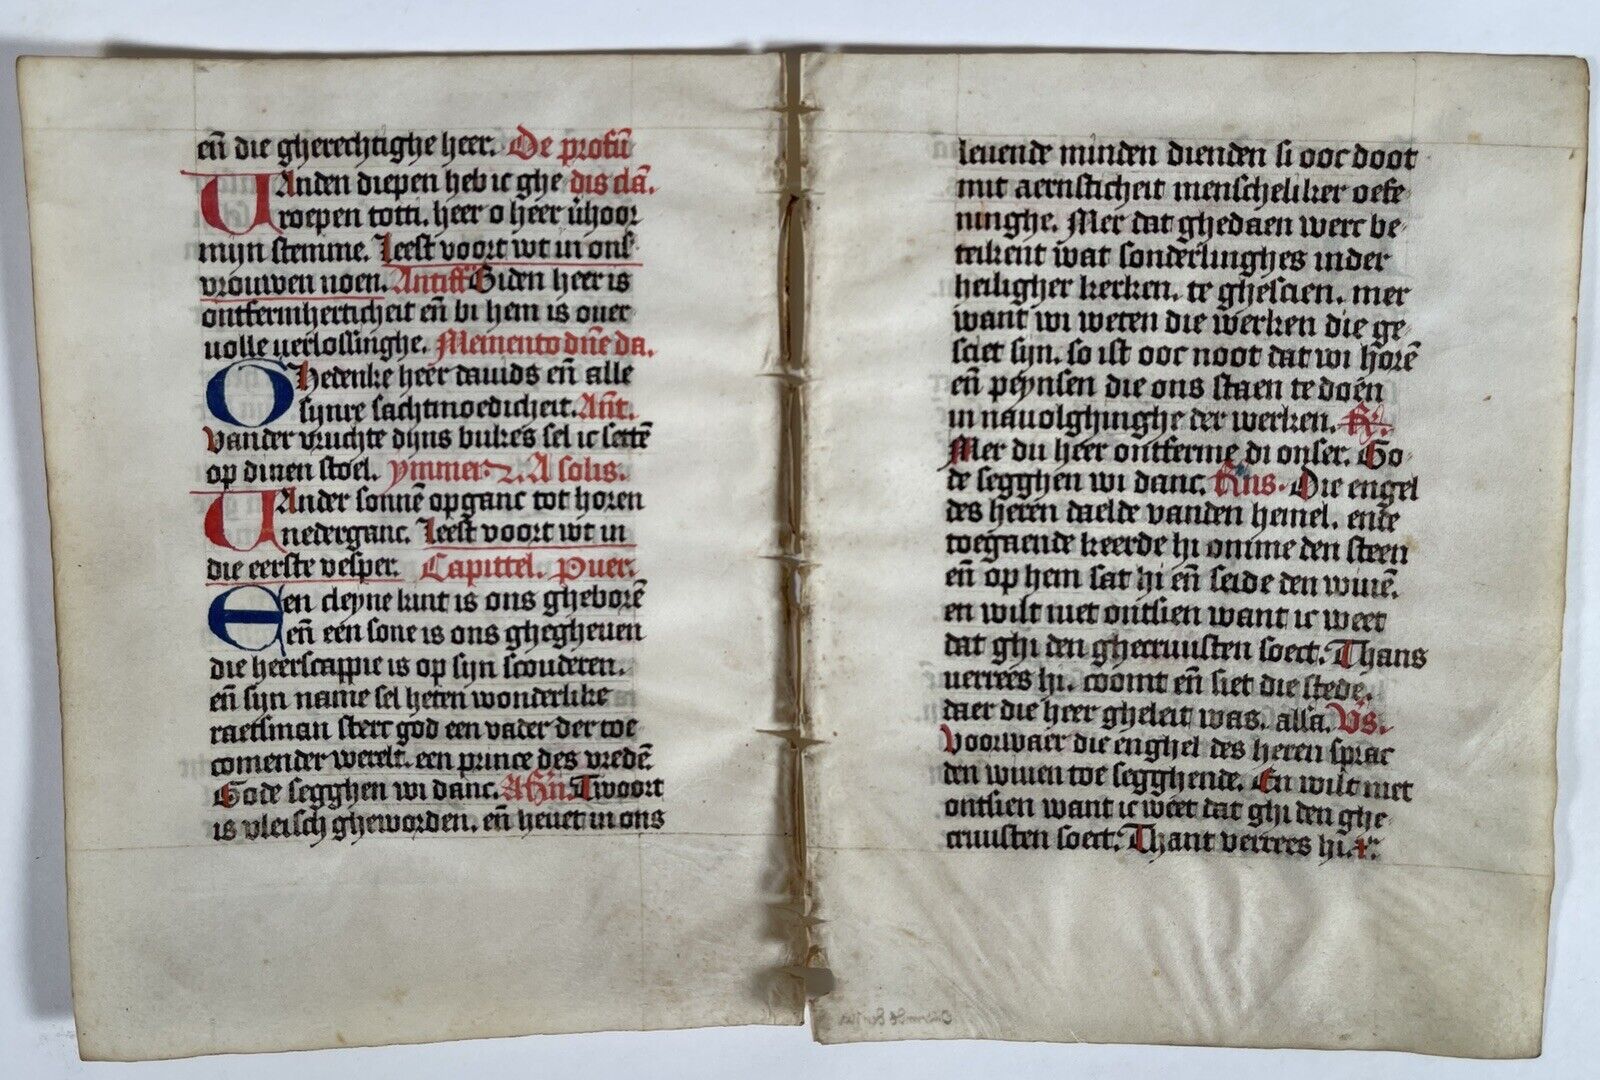 en̄ die gherechtighe heer. De profū
Uanden diepen heb ic ghe dis cla.
roepen totti. heer o heer v̇hoor
mijn stemme. Leest voort wt in ons
vrouwen noen. Antiff Biden heer is
ontfermherticheit en̄ bi hem is ouer
uolle uerlossinghe. Memento dn̄e da.
Ghedenke heer dauids en̄ alle
sijnre sachtmoedicheit. An̄t.
Vander vruchte dijns bukes sel ic settē
op dinen stoel. ymmer A solis.
Uander sonnē opganc tot horen
nederganc. Leest voort wt in
die eerste vesper. Capittel. Puer.
Een cleyne kint is ons gheborē
en̄ een sone is ons ghegheuen
die heerscappie is op sijn scouderen.
en̄ sijn name sel heten wonderlike
raetsman sterc god een vader der toe
comender werelt. een prince des vredē
Gode segghen wi danc. Twoort
is vleisch gheworden. en̄ heuet in ons
leuende minden dienden si ooc doot
mit aernsticheit menscheliker oefe
ninghe. Mer dat ghedaen werc be
teikent wat sonderlinghes inder
heiligher kerken. te ghescien. mer
want wi weten die werken die ge
sciet sijn. so ist ooc noot dat wi horē
en̄ peynsen die ons staen te doen
in nauolghinghe der werken. R.
Mer du heer ontferme di onser. Go
de segghen wi danc. Die engel
des heren daelde vanden hemel. ende
toegaende keerde hi omme den steen
en̄ op hem sat hi en̄ seide den wiuē.
en wilt niet ontsien want ic weet
dat ghi den ghecruusten soect. Thans
uerrees hi. coomt en̄ siet die stede.
daer die heer gheleit was. alla. Vs.
Voorwaer die enghel des heren sprac
den wiuen toe segghende. En wilt niet
ontsien want ic weet dat ghi den ghe
cruusten soect. Thant verrees hi.